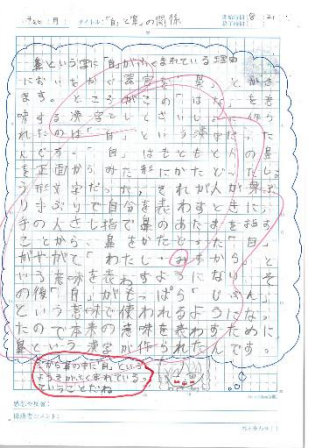 タイトル:「自」と「鼻」の関係
鼻という字に「自」がふくまれている理由
においをかぐ器官を「鼻」とかき
ます。ところがこの「はな」を意
味する漢字としてさいしょに作ら
れたのは「自」という漢字だった
んです。「自」はもともと人の鼻
を正面からみた形にかたどったしょ
う形文字だった。それが人が身ぶ
り手ぶりで自分を表わすときに、
手の人さし指で鼻のあたまを指す
ことから、鼻をかたどった「自」
がやがて「わたし・みずから」と
いう意味を表わすようになり、そ
の後「自」がもっぱら「じぶん」
という意味で使われるようになっ
たので本来の意味を表わすために
鼻という漢字が作られたんです。
だから鼻の中に「自」という
ようそがふくまれている。
ということだね